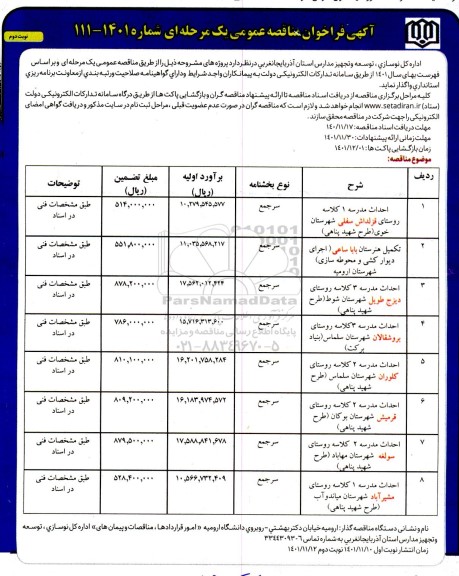 آگهی فراخوان مناقصه عمومی یک مرحله‌ای شماره ۱۴۰۱-۱۱۱
نوبت دوم
اداره کل نوسازی ، توسعه و تجهیز مدارس استان آذربایجانغربی در نظر دارد پروژه های مشروحه ذیل را از طریق مناقصه عمومی یک مرحله ای و بر اساس
فهرست بهای سال ۱۴۰۱ از طریق سامانه تدارکات الکترونیکی دولت به پیمانکاران واجد شرایط و دارای گواهینامه صلاحیت و رتبه بندی از معاونت برنامه ریزی
استانداری واگذار نماید.
کلیه مراحل برگزاری مناقصه از دریافت اسناد مناقصه تا ارائه پیشنهاد مناقصه گران و بازگشایی پاکت ها از طریق درگاه سامانه تدارکات الکترونیکی دولت
(ستاد) www.setadiran.ir انجام خواهد شد و لازم است که مناقصه گران در صورت عدم عضویت قبلی ، مراحل ثبت نام در سایت مذکور و دریافت گواهی امضای
الکترونیکی را جهت شرکت در مناقصه محقق سازند.
مهلت دریافت اسناد مناقصه: ۱۴۰۱/۱۱/۱۷
مهلت زمانی ارائه پیشنهادات: ۱۴۰۱/۱۱/۳۰
زمان بازگشایی پاکت ها: ۱۴۰۱/۱۲/۰۱
موضوع مناقصه:
ردیف شرح نوع بخشنامه برآورد اولیه (ریال) مبلغ تضمین (ریال) توضیحات
۱ احداث مدرسه ۱ کلاسه روستای قزلداش سفلی شهرستان خوی(طرح شهید پناهی) سرجمع ۱۰,۲۷۹,۵۴۵,۵۷۷ ۵۱۴,۰۰۰,۰۰۰ طبق مشخصات فنی در اسناد
۲ تکمیل هنرستان بابا ساعی( اجرای دیوار کشی و محوطه سازی) شهرستان ارومیه سرجمع ۱۱,۰۳۵,۵۶۸,۲۱۷ ۵۵۱,۸۰۰,۰۰۰ طبق مشخصات فنی در اسناد
۳ احداث مدرسه ۳ کلاسه روستای دیزج طویل شهرستان شوط(طرح شهید پناهی) سرجمع ۱۷,۵۶۲,۰۱۲,۴۲۴ ۸۷۸,۲۰۰,۰۰۰ طبق مشخصات فنی در اسناد
۴ احداث مدرسه ۳کلاسه روستای بروشقالان شهرستان سلماس(بنیاد برکت) سرجمع ۱۵,۷۱۶,۳۱۳,۶۰۰ ۷۸۶,۰۰۰,۰۰۰ طبق مشخصات فنی در اسناد
۵ احداث مدرسه ۲ کلاسه روستای گلوران شهرستان سلماس (طرح شهید پناهی) سرجمع ۱۶,۲۰۱,۷۵۸,۲۸۴ ۸۱۰,۱۰۰,۰۰۰ طبق مشخصات فنی در اسناد
۶ احداث مدرسه ۲ کلاسه روستای قرمیش شهرستان بوکان (طرح شهید پناهی) سرجمع ۱۶,۱۸۳,۹۷۴,۵۷۲ ۸۰۹,۲۰۰,۰۰۰ طبق مشخصات فنی در اسناد
۷ احداث مدرسه ۲ کلاسه روستای سولغه شهرستان مهاباد (طرح شهید پناهی) سرجمع ۱۷,۵۸۸,۸۴۱,۶۷۸ ۸۷۹,۵۰۰,۰۰۰ طبق مشخصات فنی در اسناد
۸ احداث مدرسه ۱ کلاسه روستای مشیرآباد شهرستان میاندوآب (طرح شهید پناهی) سرجمع ۱۰,۵۶۶,۷۳۲,۴۰۹ ۵۲۸,۴۰۰,۰۰۰ طبق مشخصات فنی در اسناد
ParsNamadData
پایگاه اطلاع رسانی مناقصه و مزایده
۰۲۱-۸۸۳۴۹۶۷۰-۵
نام و نشانی دستگاه مناقصه گذار : ارومیه خیابان دکتر بهشتی- روبروی دانشگاه ارومیه « امور قراردادها ، مناقصات و پیمان های» اداره کل نوسازی ، توسعه
و تجهیز مدارس استان آذربایجانغربی به شماره تماس ۶-۳۳۴۴۳۰۹۳
زمان انتشار نوبت اول ۱۴۰۱/۱۱/۱۰ نوبت دوم ۱۴۰۱/۱۱/۱۲